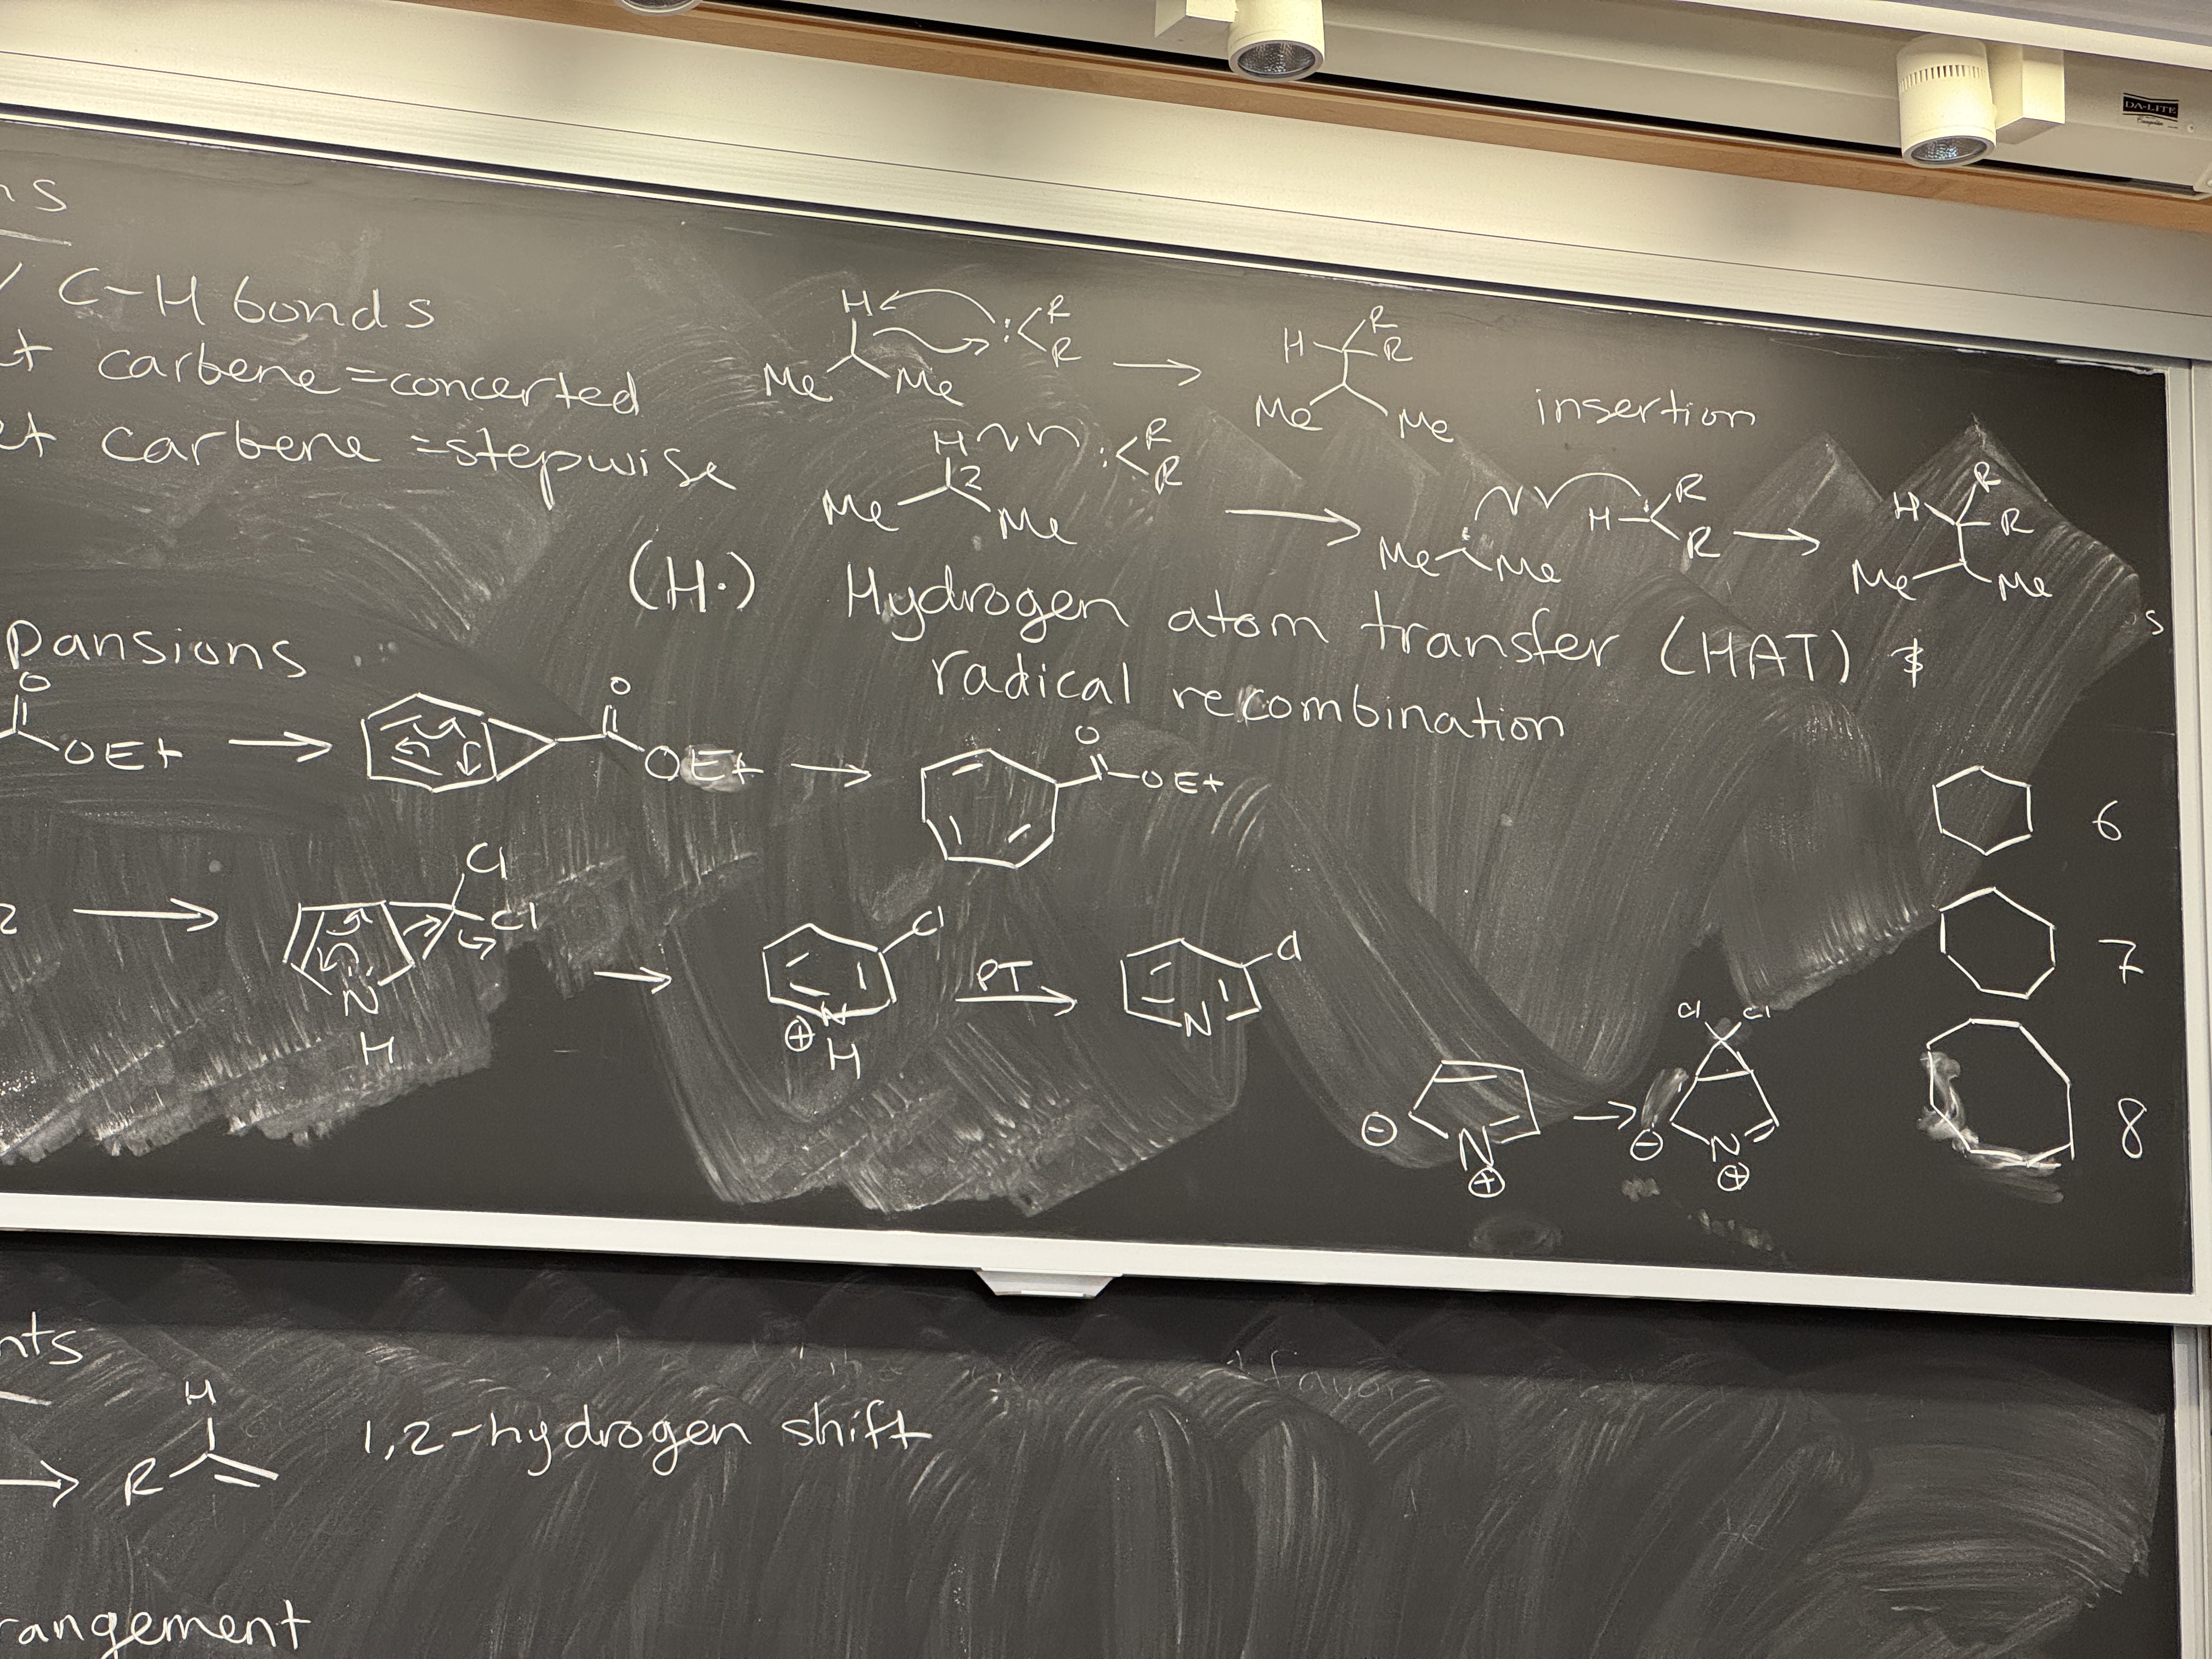 DA-LITE
ns
/ C-H bonds
t carbene=concerted
et carbene =stepwise
H : R R
Me Me
H R R
Me Me
insertion
H : R R
Me Me
H R R
Me Me
H R R
Me Me
(H·) Hydrogen atom transfer (HAT) &
radical recombination
s
pansions
O OEt
O OEt
O OEt
6
2
Cl Cl
N
H
Cl
N
⊕ H
PT
Cl
N
7
⊖ N ⊕
Cl Cl
⊖ N ⊕
8
favor
nts
H
R
1,2-hydrogen shift
rangement